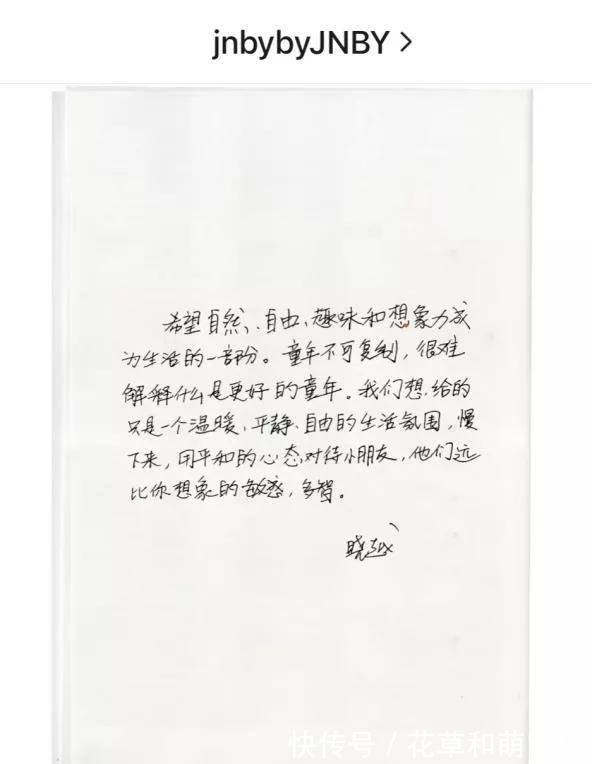 jnbybyJNBY >
希望自然、自由、趣味和想象力成
为生活的一部份。童年不可复制,很难
解释什么是更好的童年。我们想给的
只是一个温暖、平静、自由的生活氛围,慢
下来,用平和的心态对待小朋友,他们远
比你想象的敏感,多智。
晓越
快传号 / 花草和萌